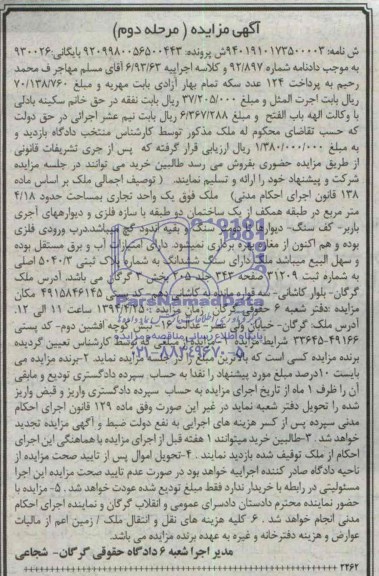 آگهی مزایده ( مرحله دوم)
ش نامه: ۹۴۰۱۹۱۰۱۷۳۵۰۰۰۰۳ ش پرونده: ۹۲۰۹۹۸۰۰۵۶۵۰۰۴۴۳ بایگانی: ۹۳۰۰۲۶
به موجب دادنامه شماره ۹۲/۸۹۷ و کلاسه اجراییه ۶/۹۳/۶۲ آقای مسلم مهاجر ف محمد
رحیم به پرداخت ۱۲۴ عدد سکه تمام بهار آزادی بابت مهریه و مبلغ ۷۰/۱۳۸/۷۶۰
ریال بابت اجرت المثل و مبلغ ۳۷/۲۰۵/۰۰۰ ریال بابت نفقه در حق خانم سکینه بادلی
با وکالت الهه باب الفتح و مبلغ ۶/۳۶۷/۲۸۸ ریال بابت نیم عشر اجرائی در حق دولت
که حسب تقاضای محکوم له ملک مذکور توسط کارشناس منتخب دادگاه بازدید و
به مبلغ ۱/۳۸۰/۰۰۰/۰۰۰ ریال ارزیابی قرار گرفته که پس از جری تشریفات قانونی
از طریق مزایده حضوری بفروش می رسد طالبین خرید می توانند در جلسه مزایده
شرکت و پیشنهاد خود را ارائه و تسلیم نمایند. ( توصیف اجمالی ملک بر اساس ماده
۱۳۸ قانون اجرای احکام مدنی) ملک فوق یک واحد تجاری بمساحت حدود ۴/۱۸
متر مربع در طبقه همکف از یک ساختمان دو طبقه با سازه فلزی و دیوارهای آجری
باربر- کف سنگ- دیوارها سنگ و بقیه اندود گچ میباشد.درب ورودی فلزی
بوده و هم اکنون از مغازه بهره برداری نمیشود. دارای امتیازات آب و برق مستقل بوده
و سهل البیع میباشد ملک دارای سنگ ششدانگ به شماره پلاک ثبتی ۵۰۴۰/۳ اصلی
به شماره ثبت ۳۱۲۰۹ صفحه ۳۴۳ جلد ۲۰۵ بخش ۳ گرگان می باشد. آدرس ملک
گرگان- بلوار کاشانی- کاشانی کد پستی ۴۹۱۵۸۴۶۱۴۵ مکان
مزایده :دفتر شعبه ۶ حقوقی گرگان زمان مزایده : ۱۳۹۴/۴/۲۵ ساعت ۱۱ الی ۱۲.
آدرس ملک: گرگان- خیابان ولی عصر- عدالت ۱۶- کوچه افشین دوم- کد پستی
۴۹۱۶۶-۳۳۶۴۵ شرایط مزایده ۱-مزایده از مبلغی که توسط کارشناس تعیین گردیده
برنده مزایده کسی است که بالاترین مبلغ را از بابت مزایده نماید. ۲-برنده مزایده می
بایست ۱۰درصد مبلغ مورد پیشنهاد را نقدا به حساب سپرده دادگستری تودیع و مابقی
آن را ظرف ۱ ماه از تاریخ اجرای مزایده به حساب سپرده دادگستری واریز و قبض واریز
شده را تحویل دفتر شعبه نماید در غیر این صورت وفق ماده ۱۲۹ قانون اجرای احکام
مدنی سپرده پس از کسر هزینه های اجرایی به نفع دولت ضبط و آگهی مزایده تجدید
خواهد شد .۳-طالبین خرید میتوانند ۱ هفته قبل از اجرای مزایده با هماهنگی این اجرای
احکام از ملک توقیف شده بازدید نمایند . ۴-تحویل اموال پس از تایید صحت مزایده از
ناحیه دادگاه صادر کننده اجراییه خواهد بود در صورت عدم تایید صحت مزایده این اجرا
مسئولیتی در رابطه با خریدار ندارد فقط مبلغ تودیع شده عودت خواهد شد . ۵- مزایده با
حضور نماینده محترم دادستان دادسرای عمومی و انقلاب گرگان و نماینده اجرای احکام
مدنی انجام خواهد شد . ۶- کلیه هزینه های نقل و انتقال ملک / زمین اعم از مالیات
عوارض و هزینه دفترخانه و غیره به عهده برنده مزایده می باشد.
مدیر اجرا شعبه ۶ دادگاه حقوقی گرگان- شجاعی
۲۲۶۲
ParsNamadData
۰۲۱-۸۸۳۴۹۶۷۰-۵